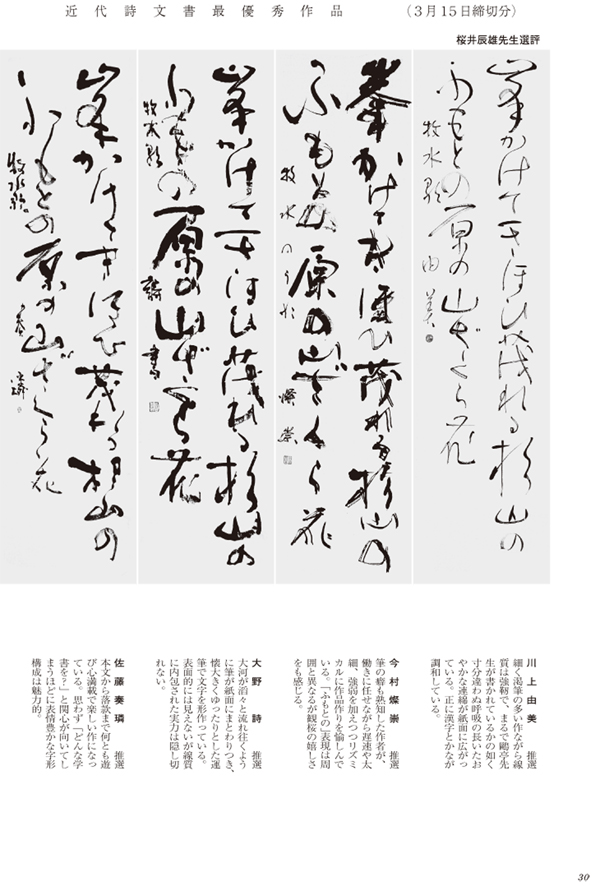 近代詩文書最優秀作品 （３月１５日締切分）
桜井辰雄先生選評
峯かけてきほひ茂れる杉山の
ふもとの原の山ざくら花
牧水歌 由美
峯かけてきほひ茂れる杉山の
ふもとの原の山ざくら花
牧水のうた 燦崇
峯かけてきほひ茂れる杉山の
ふもとの原の山ざくら花
牧水歌 詩書
峯かけてきほひ茂れる杉山の
ふもとの原の山ざくら花
牧水歌 奏璘
川上由美 推選
細く渇筆の多い作ながら線
質は強靭で、まるで鷗亭先
生が書かれているかの如く
寸分違わぬ呼吸の長いたお
やかな連綿が紙面に広がっ
ている。正に漢字とかなが
調和している。
今村燦崇 推選
筆の癖も熟知した作者が、
働きに任せながら遅速や太
細、強弱を加えつつリズミ
カルに作品作りを愉しんで
いる。「ふもとの」表現は周
囲と異なるが観桜の嬉しさ
をも感じる。
大野詩 推選
大河が滔々と流れ往くよう
に筆が紙面にまとわりつき、
懐大きくゆったりとした運
筆で文字を形作っている。
表面的には見えないが線質
に内包された実力は隠し切
れない。
佐藤奏璘 推選
本文から落款まで何とも遊
び心満載で楽しい作になっ
ている。思わず「どんな学
書を？」と関心が向いてし
まうほどに表情豊かな字形
構成は魅力的。
30